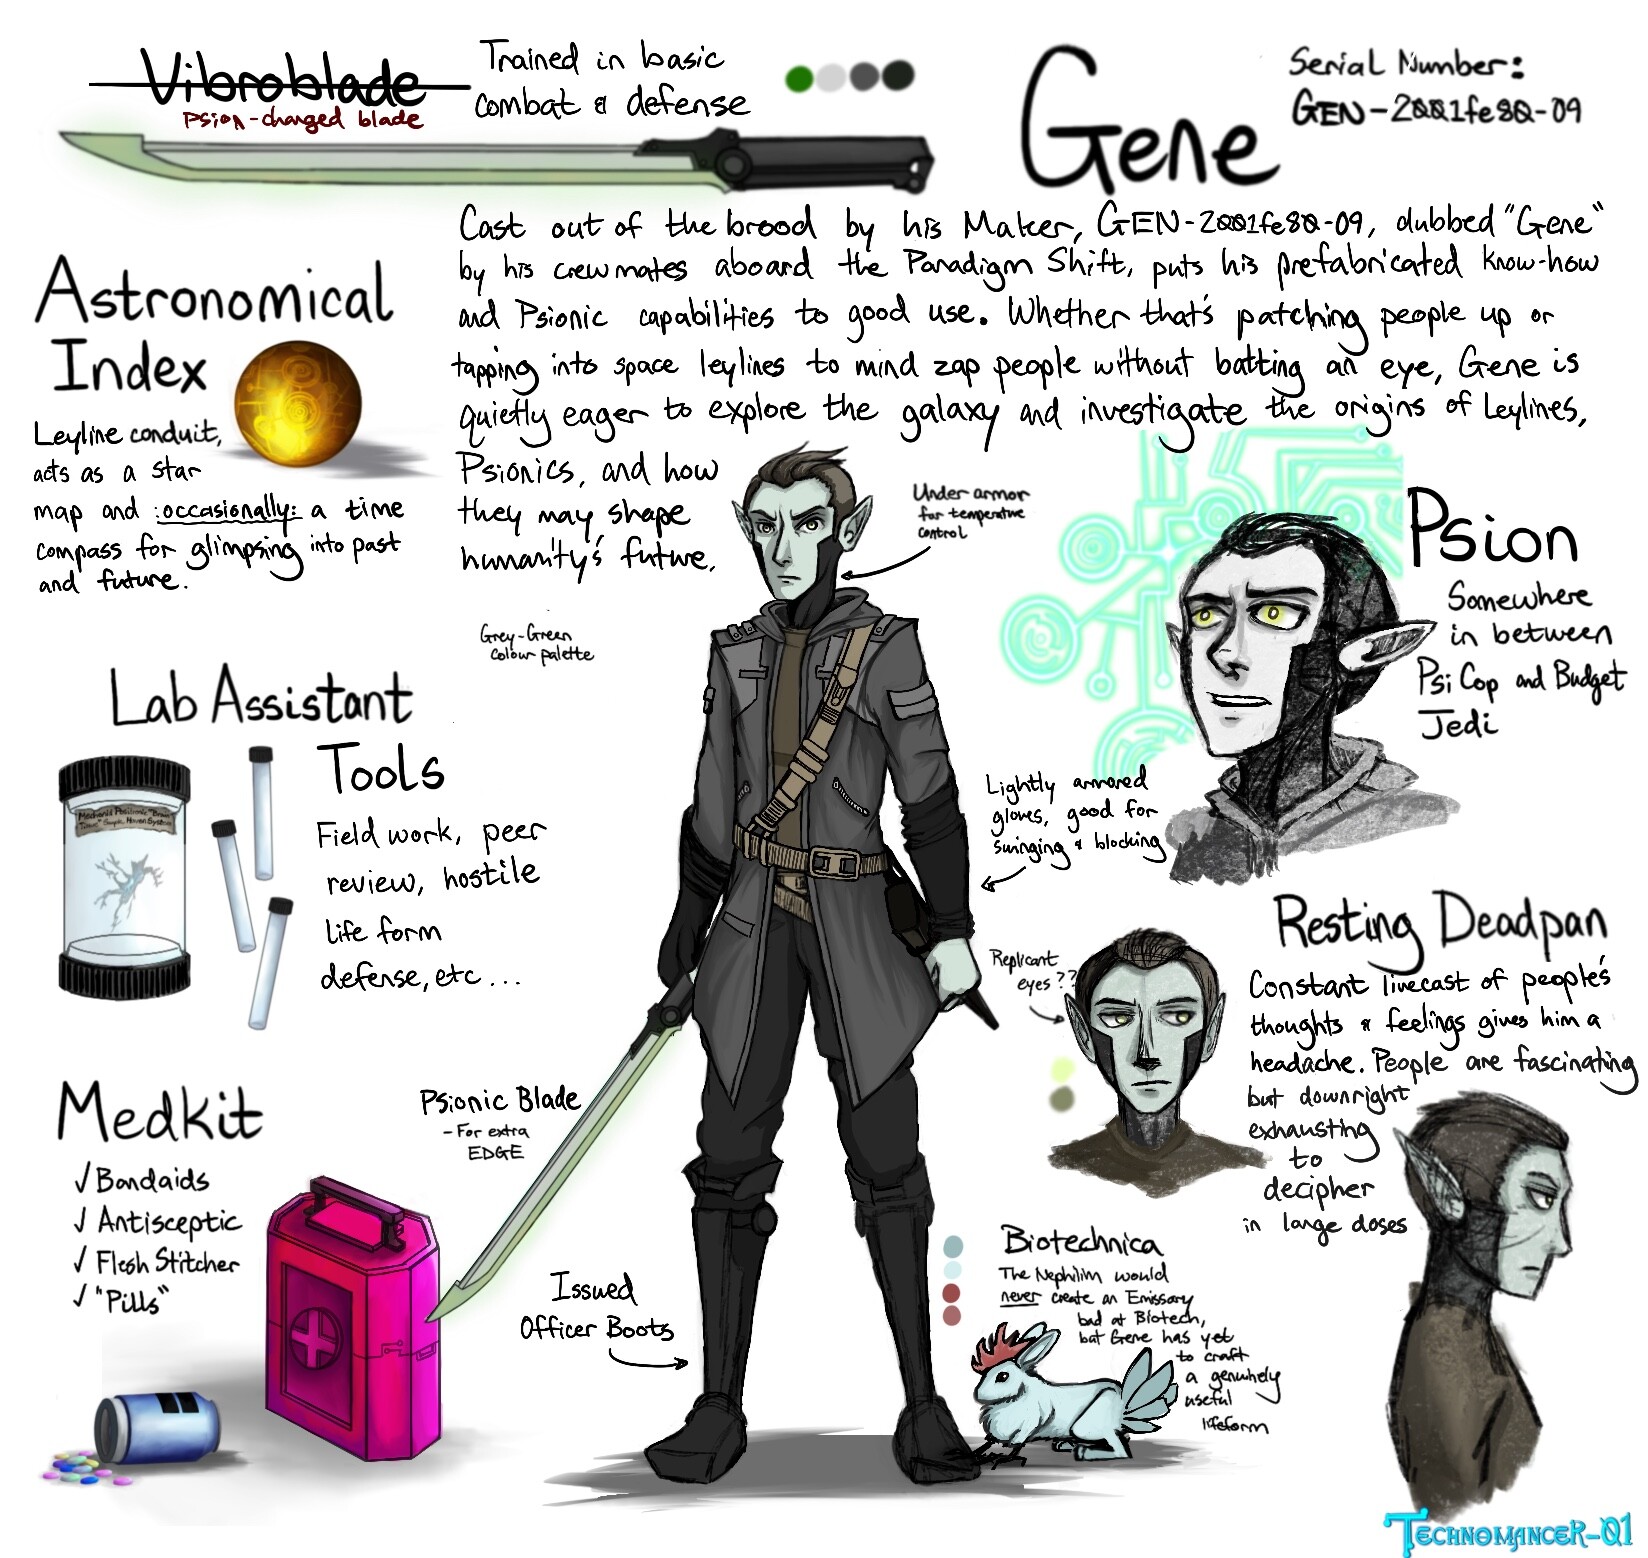 Vibroblade
Psion-charged blade
Trained in basic
combat & defense
Gene
Serial Number:
GEN-2001fe80-09
Cast out of the brood by his Maker, GEN-2001fe80-09, dubbed "Gene"
by his crewmates aboard the Paradigm Shift, puts his prefabricated know-how
and Psionic capabilities to good use. Whether that's patching people up or
tapping into space leylines to mind zap people without batting an eye, Gene is
quietly eager to explore the galaxy and investigate the origins of Leylines,
Psionics, and how
they may shape
humanity's future.
Astronomical
Index
Leyline conduit,
acts as a star
map and :occasionally: a time
compass for glimpsing into past
and future.
Under armor
for temperature
control
Grey-Green
Colour palette
Psion
Somewhere
in between
Psi Cop and Budget
Jedi
Lab Assistant
Tools
Field work, peer
review, hostile
life form
defense, etc...
Mechanid Positronic "Brain
Tissue" Sample, Haven System
Lightly armored
gloves, good for
swinging & blocking
Resting Deadpan
Constant livecast of people's
thoughts & feelings gives him a
headache. People are fascinating
but downright
exhausting
to
decipher
in large doses
Replicant
eyes??
Medkit
✓ Bandaids
✓ Antisceptic
✓ Flesh Stitcher
✓ "Pills"
Psionic Blade
- For extra
EDGE
Issued
Officer Boots
Biotechnica
The Nephilim would
never create an Emissary
bad at Biotech,
but Gene has yet
to craft
a genuinely
useful
lifeform
Technomancer-01